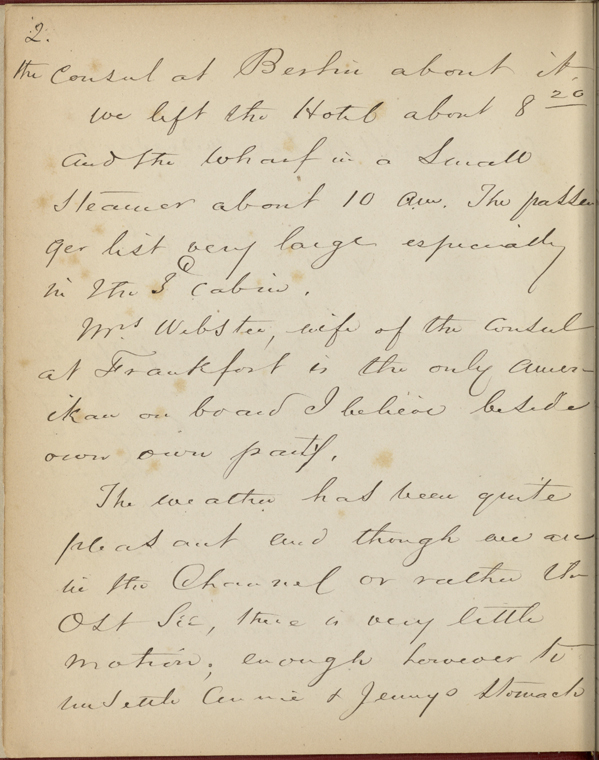 2.
the Consul at Berlin about it
we left the Hotel about 8 20
and the wharf in a Small
Steamer about 10 am. The passen
ger list very large especially
in the 3d Cabin.
Mrs Webster, wife of the Consul
at Frankfort is the only Amer-
ikan on board I believe beside
own own party.
The weather has been quite
pleasant and though we are
in the Channel or rather the
Ost See, there is very little
motion; enough however to
unsettle Annie & Jennys Stomach